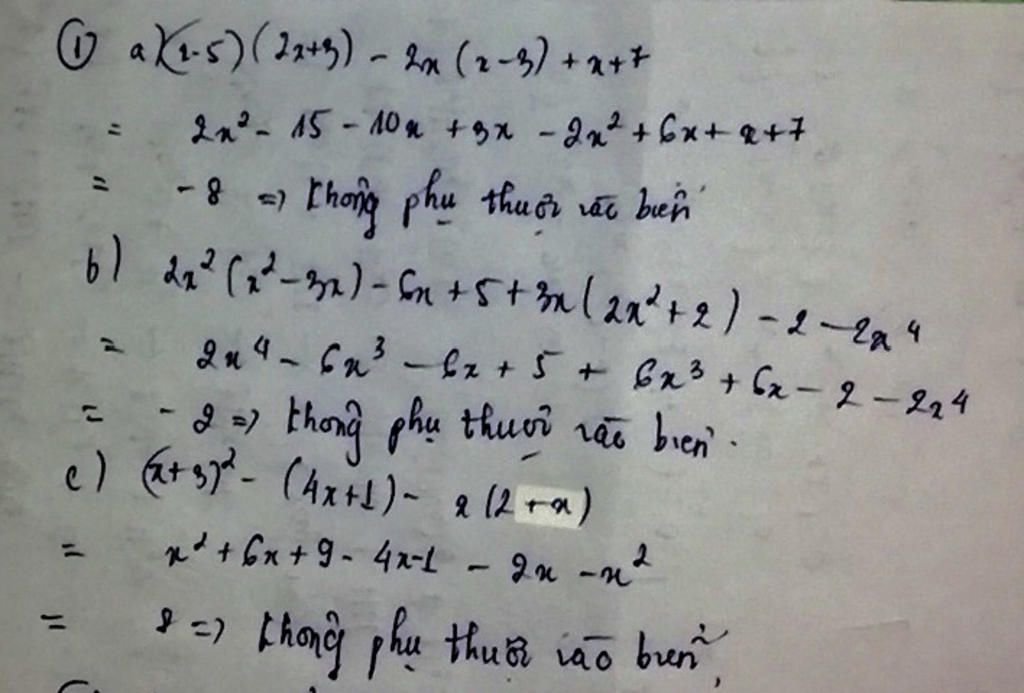 ① a) (x-5)(2x+3) - 2x(x-3) + x+7
= 2x² - 15 - 10x + 3x - 2x² + 6x + x + 7
= -8 => không phụ thuộc vào biến
b) 2x²(x²-3x) - 6x + 5 + 3x(2x²+2) - 2 - 2x⁴
= 2x⁴ - 6x³ - 6x + 5 + 6x³ + 6x - 2 - 2x⁴
= -2 => không phụ thuộc vào biến.
c) (x+3)² - (4x+1) - x(2+x)
= x² + 6x + 9 - 4x - 1 - 2x - x²
= 8 => không phụ thuộc vào biến,